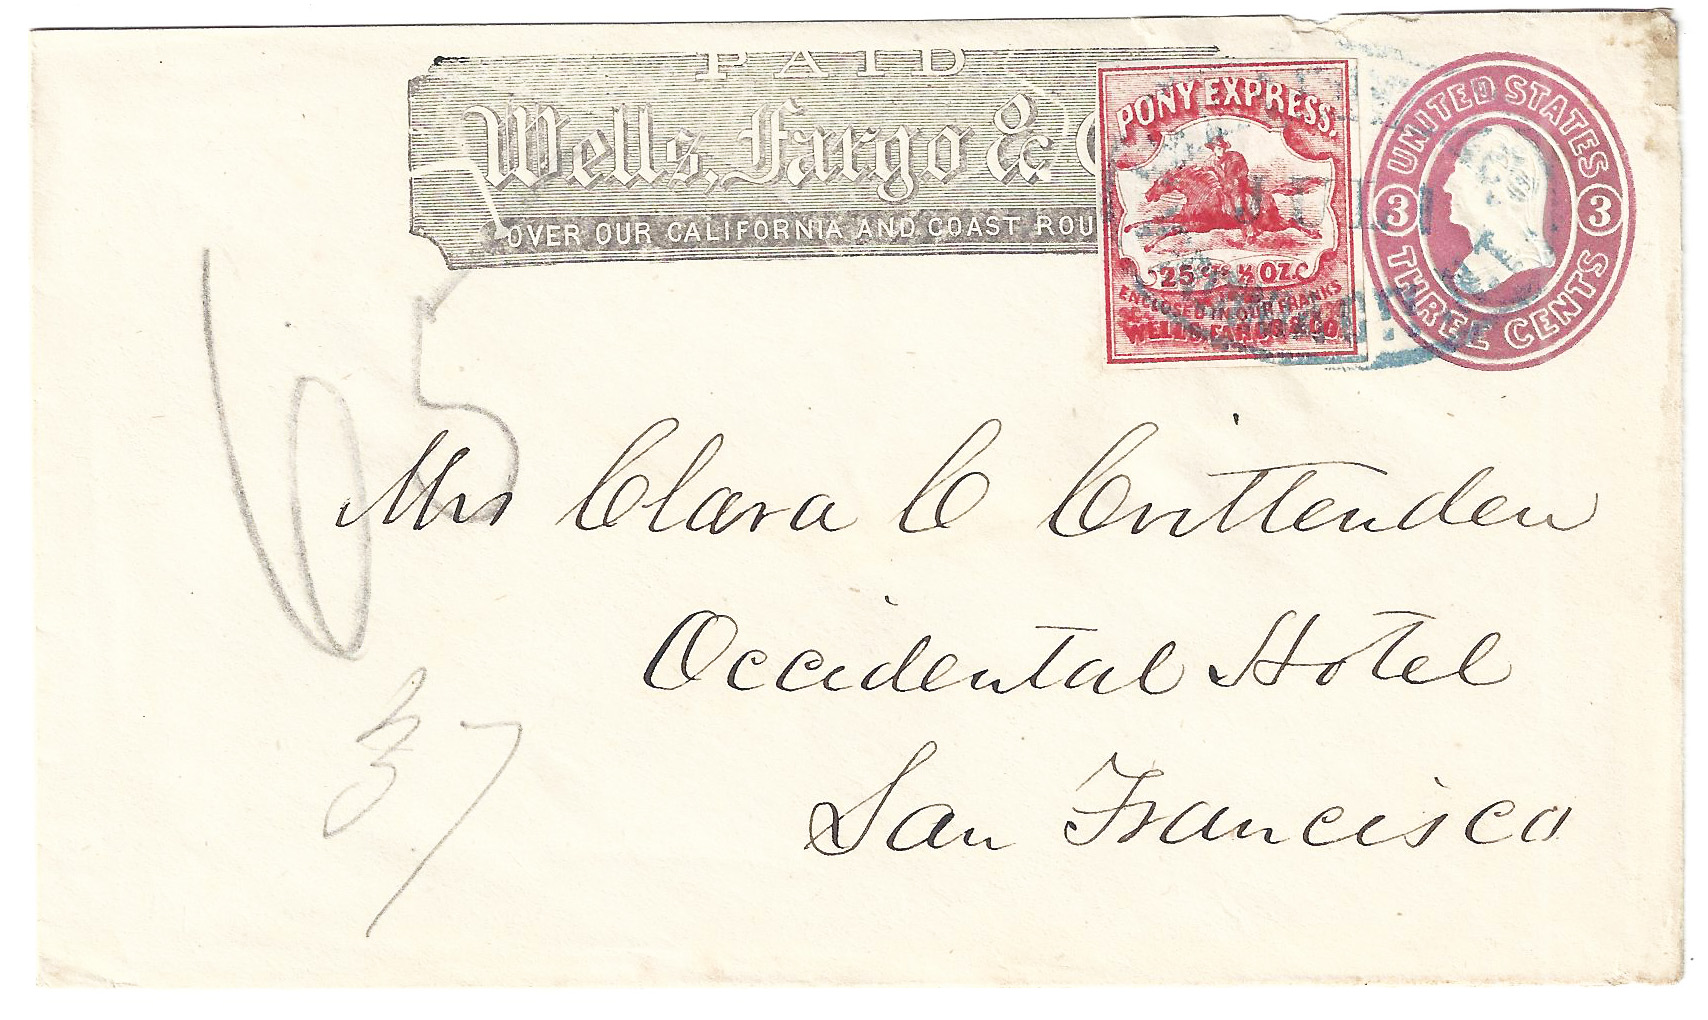 PAID
Wells, Fargo & C
OVER OUR CALIFORNIA AND COAST ROU
PONY EXPRESS.
25 cts ½ OZ.
ENCLOSED IN OUR FRANKS
WELLS, FARGO & CO.
UNITED STATES
3 3
THREE CENTS
65
Mrs Clara C Crittenden
Occidental Hotel
San Francisco
37